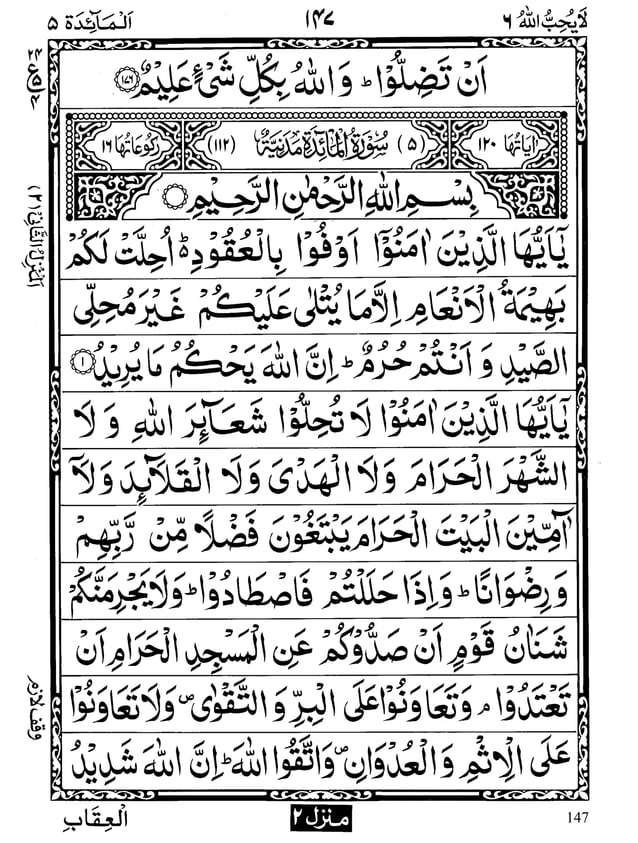 لَا يُحِبُّ اللهُ ٦ ١٤٧ اَلْمَآئِدَة ٥
اَنْ تَضِلُّوْا ؕ وَاللّٰهُ بِكُلِّ شَىْءٍ عَلِيْمٌ ﴿۱۷۶﴾
اٰيَاتُهَا ١٢٠ (٥) سُوْرَةُ الْمَآئِدَةِ مَدَنِيَّةٌ (١١٢) رُكُوْعَاتُهَا ١٦
بِسْمِ اللهِ الرَّحْمٰنِ الرَّحِيْمِ
يٰۤاَيُّهَا الَّذِيْنَ اٰمَنُوْۤا اَوْفُوْا بِالْعُقُوْدِ ؕ اُحِلَّتْ لَكُمْ
بَهِيْمَةُ الْاَنْعَامِ اِلَّا مَا يُتْلٰى عَلَيْكُمْ غَيْرَ مُحِلِّى
الصَّيْدِ وَ اَنْتُمْ حُرُمٌ ؕ اِنَّ اللهَ يَحْكُمُ مَا يُرِيْدُ ﴿۱﴾
يٰۤاَيُّهَا الَّذِيْنَ اٰمَنُوْا لَا تُحِلُّوْا شَعَآئِرَ اللهِ وَ لَا
الشَّهْرَ الْحَرَامَ وَلَا الْهَدْىَ وَلَا الْقَلَآئِدَ وَلَاۤ
آٰمِّيْنَ الْبَيْتَ الْحَرَامَ يَبْتَغُوْنَ فَضْلًا مِّنْ رَّبِّهِمْ
وَ رِضْوَانًا ؕ وَاِذَا حَلَلْتُمْ فَاصْطَادُوْا ؕ وَلَا يَجْرِمَنَّكُمْ
شَنَاٰنُ قَوْمٍ اَنْ صَدُّوْكُمْ عَنِ الْمَسْجِدِ الْحَرَامِ اَنْ
تَعْتَدُوْا ۘ وَتَعَاوَنُوْا عَلَى الْبِرِّ وَ التَّقْوٰى ۪ وَلَا تَعَاوَنُوْا
عَلَى الْاِثْمِ وَ الْعُدْوَانِ ۪ وَاتَّقُوا اللهَ ؕ اِنَّ اللهَ شَدِيْدُ
الْعِقَابِ منزل ٢ 147
٢٤
ع
٤
اَلْمَنْزِلُ الثَّانِيْ (٢)
وقف لازم